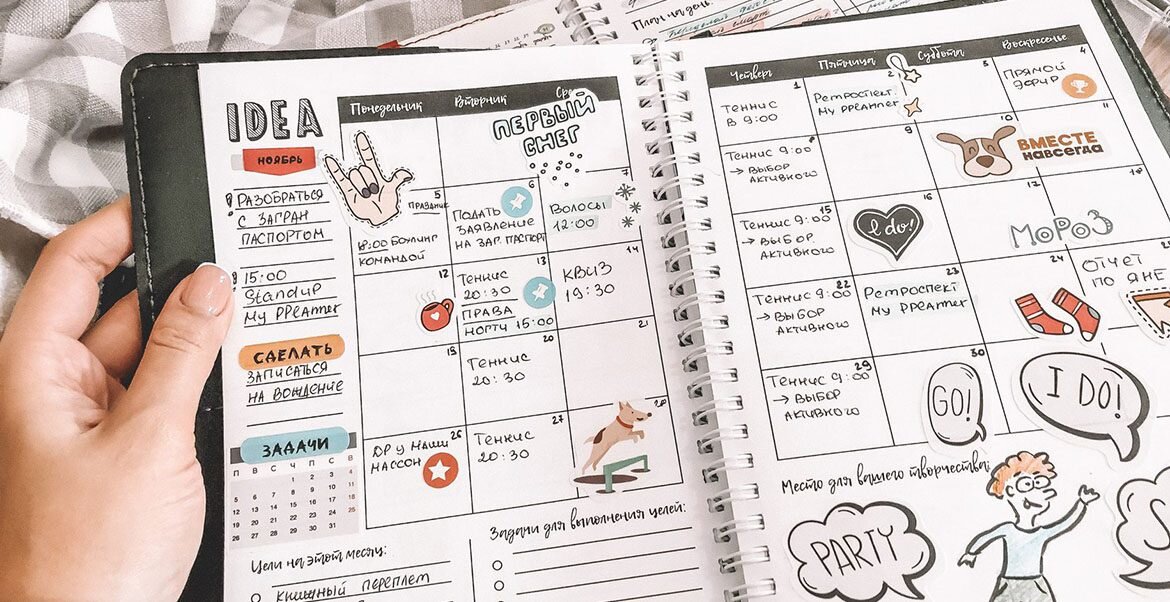 План на день:
IDEA
НОЯБРЬ
! РАЗОБРАТЬСЯ
С ЗАГРАН
ПАСПОРТОМ
15:00
Standup
My PPEAMTER
СДЕЛАТЬ
ЗАПИСАТЬСЯ
НА ВОЖДЕНИЕ
ЗАДАЧИ
П В С Ч П С В
1 2 3 4
5 6 7 8 9 10 11
12 13 14 15 16 17 18
19 20 21 22 23 24 25
26 27 28 29 30 31
Понедельник Вторник
ПЕРВЫЙ
СНЕГ
5
ПРАЗДНИК
18:00 БОУЛИНГ
КОМАНДОЙ
6
ПОДАТЬ
ЗАЯВЛЕНИЕ
НА ЗАГ. ПАСПОРТ
7
ВОЛОСЫ
12:00
12
13
ТЕННИС
20:30
ПРАВА
НОГТИ 15:00
14
КВИЗ
19:30
19
20
ТЕННИС
20:30
21
26
ДР У МАШИ
МАССОН
27
ТЕННИС
20:30
28
Цели на этот месяц:
КНИЖНЫЙ ПЕРЕПЛЕТ
Задачи для выполнения целей:
Четверг Пятница Суббота Воскресенье
1
ТЕННИС
В 9:00
2
РЕТРОСПЕКТ.
3
4
ПРЯМОЙ
ЭФИР
8
ТЕННИС 9:00
→ ВЫБОР
АКТИВНОГО
9
10
ВМЕСТЕ
НАВСЕГДА
11
15
ТЕННИС 9:00
→ ВЫБОР
АКТИВНОГО
16
I do!
17
МОРОЗ
18
22
ТЕННИС 9:00
→ ВЫБОР
АКТИВНОГО
23
РЕТРОСПЕКТ
24
ОТЧЕТ
ПО ЯНЕ
29
ТЕННИС 9:00
→ ВЫБОР
АКТИВНОГО
30
GO!
I DO!
Место для вашего творчества:
PARTY